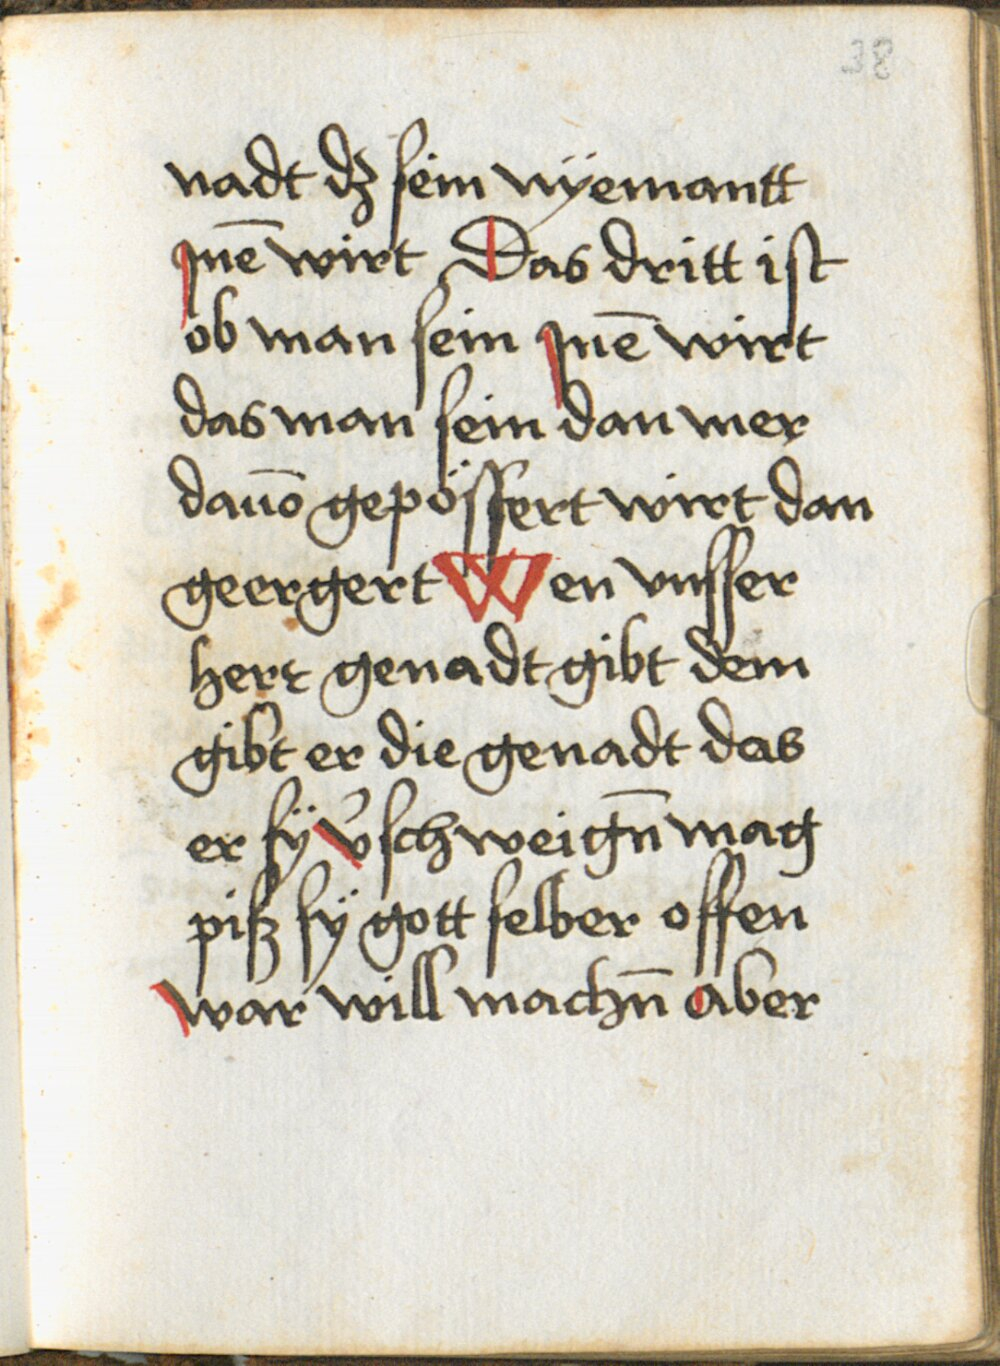 38
nadt dz sein nÿemantt
jnē wirt Das dritt ist
ob man sein jnē wirt
das man sein dan mer
dauō gepössert wirt dan
geergert Wen vnsser
herr genadt gibt dem
gibt er die genadt das
er sÿ v̄schweign̄ mag
piß sÿ gott selber offen
war will machn̄ aber